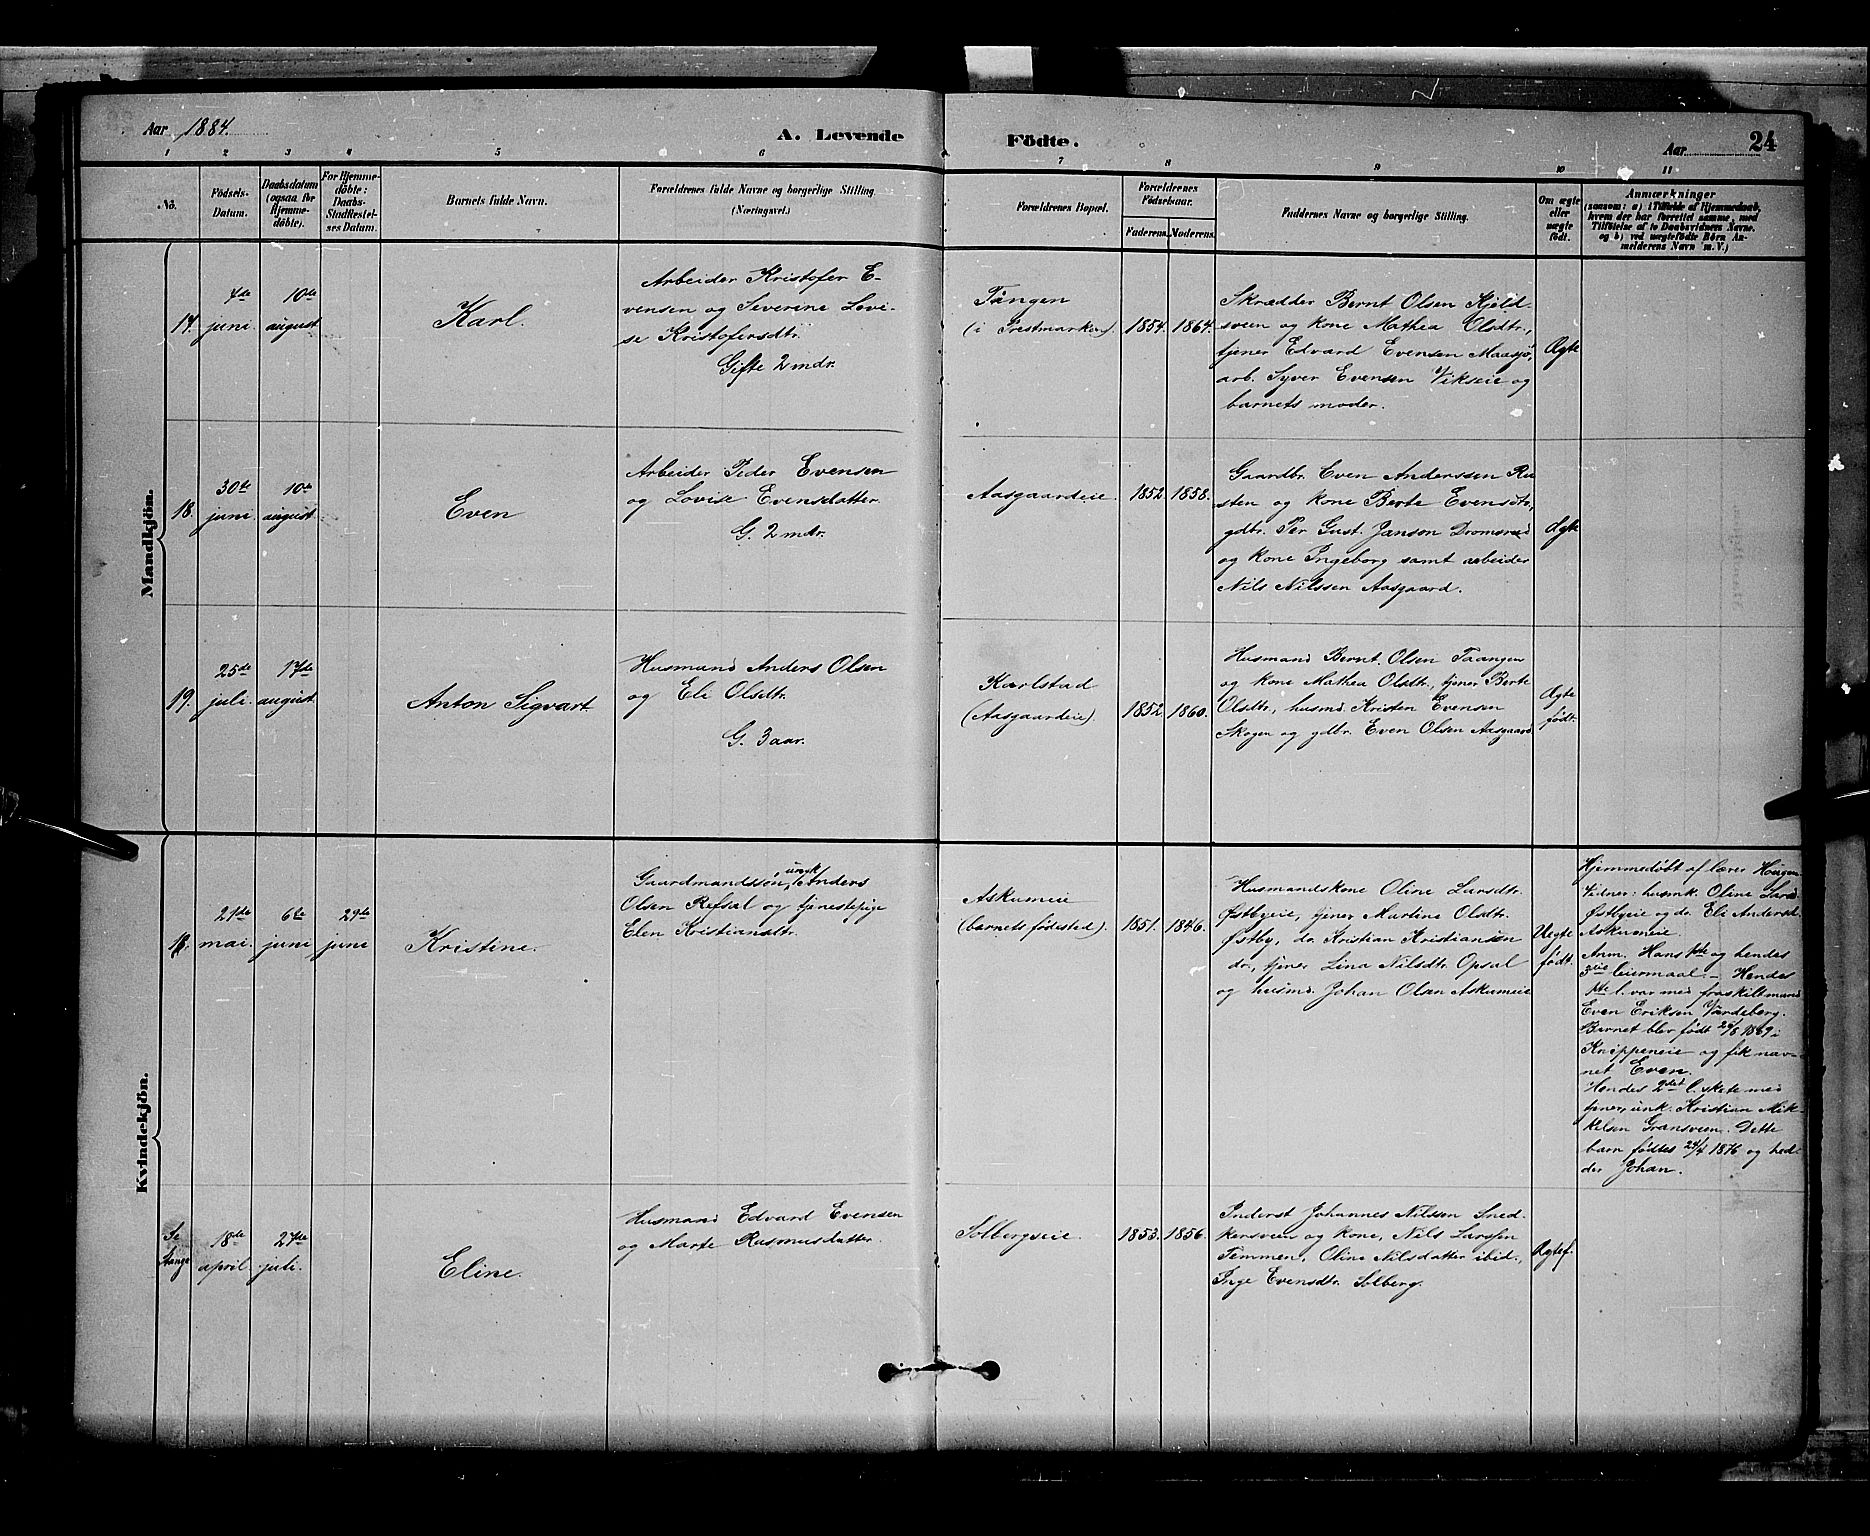 Aar 1884.
A. Levende
Födte.
Aar
24
1 2 3 4 5 6 7 8 9 10 11
No.
Födsels-
Datum.
Daabsdatum
(ogsaa for
Hjemme-
döbte).
For Hjemme-
döbte:
Daabs-
Stadfæstel-
ses Datum.
Barnets fulde Navn.
Forældrenes fulde Navne og borgerlige Stilling.
(Næringsvei.)
Forældrenes Bopæl.
Forældrenes
Födselsaar.
Faderens. Moderens.
Faddernes Navne og borgerlige Stilling.
Om ægte
eller
uægte
födt.
Anmærkninger
(saasom: a) i Tilfælde af Hjemmedaab,
hvem der har forrettet samme, med
Tilföielse af to Daabsvidners Navne,
og b) ved uægtefödte Börn An-
melderens Navn m. V.)
Mandkjön.
17.
7de
juni.
10de
august
Karl.
Arbeider Kristofer E-
vensen og Severine Lovi-
se Kristofersdtr.
Gifte 2 mdr.
Tangen
(i Prestmarken)
1854. 1864.
Skrædder Bernt Olsen Kjeld-
sveen og kone Mathea Olsdtr.,
tjener Edvard Evensen Maasjø,
arb. Syver Evensen Vikseie og
barnets moder.
Ægte
18.
30te
juni.
10de
august
Even
Arbeider Peder Evensen
og Lovise Evensdatter.
G. 2 mdr.
Aasgaardeie.
1852 1858.
Gaardbr. Even Anderssen Ru-
sten og kone Berte Evensdtr,
gdbr. Per Gust. Janson
og kone Ingeborg samt arbeider
Nils Nilssen Aasgaard.
Ægte
19.
25de
juli.
17de
august.
Anton Sigvart
Husmand Anders Olsen
og Eli Olsdtr.
G. 3 aar.
Karlstad
(Aasgaardeie).
1852 1860.
Husmand Bernt Olsen Taangen
og kone Mathea Olsdtr., tjener Berte
Olsdtr., husmd. Kristen Evensen
Skogen og gdbr. Even Olsen Aasgaard
Ægte
født.
Kvindekjön.
18.
21de
mai.
6te
juni
29de
juni
Kristine.
Gaardmandssøn, unk Anders
Olsen Refsal og tjenestepige
Elen Kristiansdtr.
Askumeie
(barnets fødested).
1851. 1846.
Husmandskone Oline Larsdtr.
Østbyeie, tjener Martine Olsdtr.
Østby, do. Kristian Kristiansen
do., tjener Lina Nilsdtr. Opsal
og husmd. Johan Olsen Askumeie
Uegte
født.
Hjemmedøbt af lærer Haugen
Vidner: husmk. Oline Larsd.
Østbyeie og do. Eli Andersd.
Askumeie.
Anm. Hans 1ste og hendes
3die leiermaal. – Hendes
1ste l. var med fraskilt mand
Even Eriksen Vardeberg.
Barnet blev født 24/8 1869 i
Knippeneie og fik nav-
net Even.
Hendes 2det l. skete med
tjener, unk. Kristian Mik-
kelsen Gransveen. Dette
barn fødtes 24/4 1876 og hed-
der Johan.
Se
Stange
18de
april
27de
juli.
Eline.
Husmand Edvard Evensen
og Marte Rasmusdatter.
Solbergseie.
1853. 1856.
Inderst Johannes Nilsen Sned-
kersveen og kone, Nils Larsen
Temmen, Oline Nilsdatter ibid.,
Inge Evensdtr. Solberg.
Ægtef.